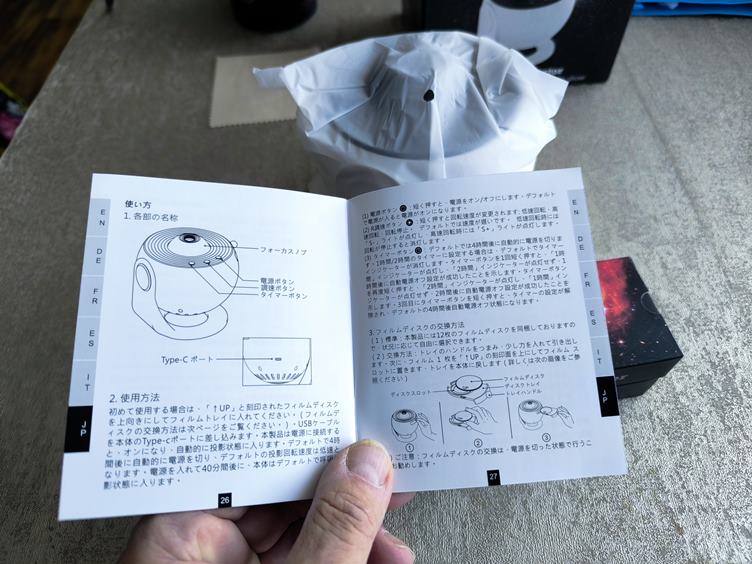 使い方
1. 各部の名称
フォーカスノブ
電源ボタン
調速ボタン
タイマーボタン
Type-C ポート
2. 使用方法
初めて使用する場合は、「↑UP」と刻印されたフィルムディスク
を上向きにしてフィルムトレイに入れてください（フィルムデ
ィスクの交換方法は次ページをご覧ください）。USBケーブル
を本体のType-cポートに差し込みます。本製品は電源に接続する
と、オンになり、自動的に投影状態に入ります。デフォルトで4時
間後に自動的に電源を切り、デフォルトの投影回転速度は低速と
なります。電源を入れて40分間後に、本体はデフォルトで呼吸
影状態に入ります。
26
EN
DE
FR
ES
IT
JP
(1) 電源ボタン：短く押すと、電源をオン/オフにします。デフォルト
で電源が入ると電源がオンになります。
(2) R調速ボタン：短く押すと回転速度が変更されます: 低速回転、高
速回転、回転停止。デフォルトでは速度が遅いです。低速回転時には
「S-」ライトが点灯し、高速回転時には「S+」ライトが点灯します。
回転が停止すると消灯します。
(3) タイマーボタン：デフォルトでは4時間後に自動的に電源を切りま
す。1時間/2時間のタイマーに設定する場合は、デフォルトでタイマー
インジケーターが消灯します。タイマーボタンを1回短く押すと、「1時
間」インジケーターが点灯し、「2時間」インジケーターが点灯せず、1
時間後に自動電源オフ設定が成功したことを示します。タイマーボタン
を再度短く押すと、「2時間」インジケーターが点灯し、「1時間」イン
ジケーターが点灯せず、2時間後に自動電源オフ設定が成功したことを
示します。3回目にタイマーボタンを短く押すと、タイマーの設定が解
除され、デフォルトの4時間後自動電源オフ状態になります。
3.フィルムディスクの交換方法
(1) 標準：本製品には12枚のフィルムディスクを同梱しておりますの
で、状況に応じて自由に選択できます。
(2) 交換方法：トレイのハンドルをつまみ、少し力を入れて引き出し
ます。次に、フィルム 1 枚を「↑UP」の刻印面を上にしてフィルム ス
ロットに置きます。トレイを本体に戻します (詳しくは次の画像をご参
照ください)
フィルムディスク
ディスクトレイ
ディスクスロット
トレイハンドル
①
②
③
ご注意：フィルムディスクの交換は、電源を切った状態で行うこ
お勧めします。
27
EN
DE
FR
ES
IT
JP